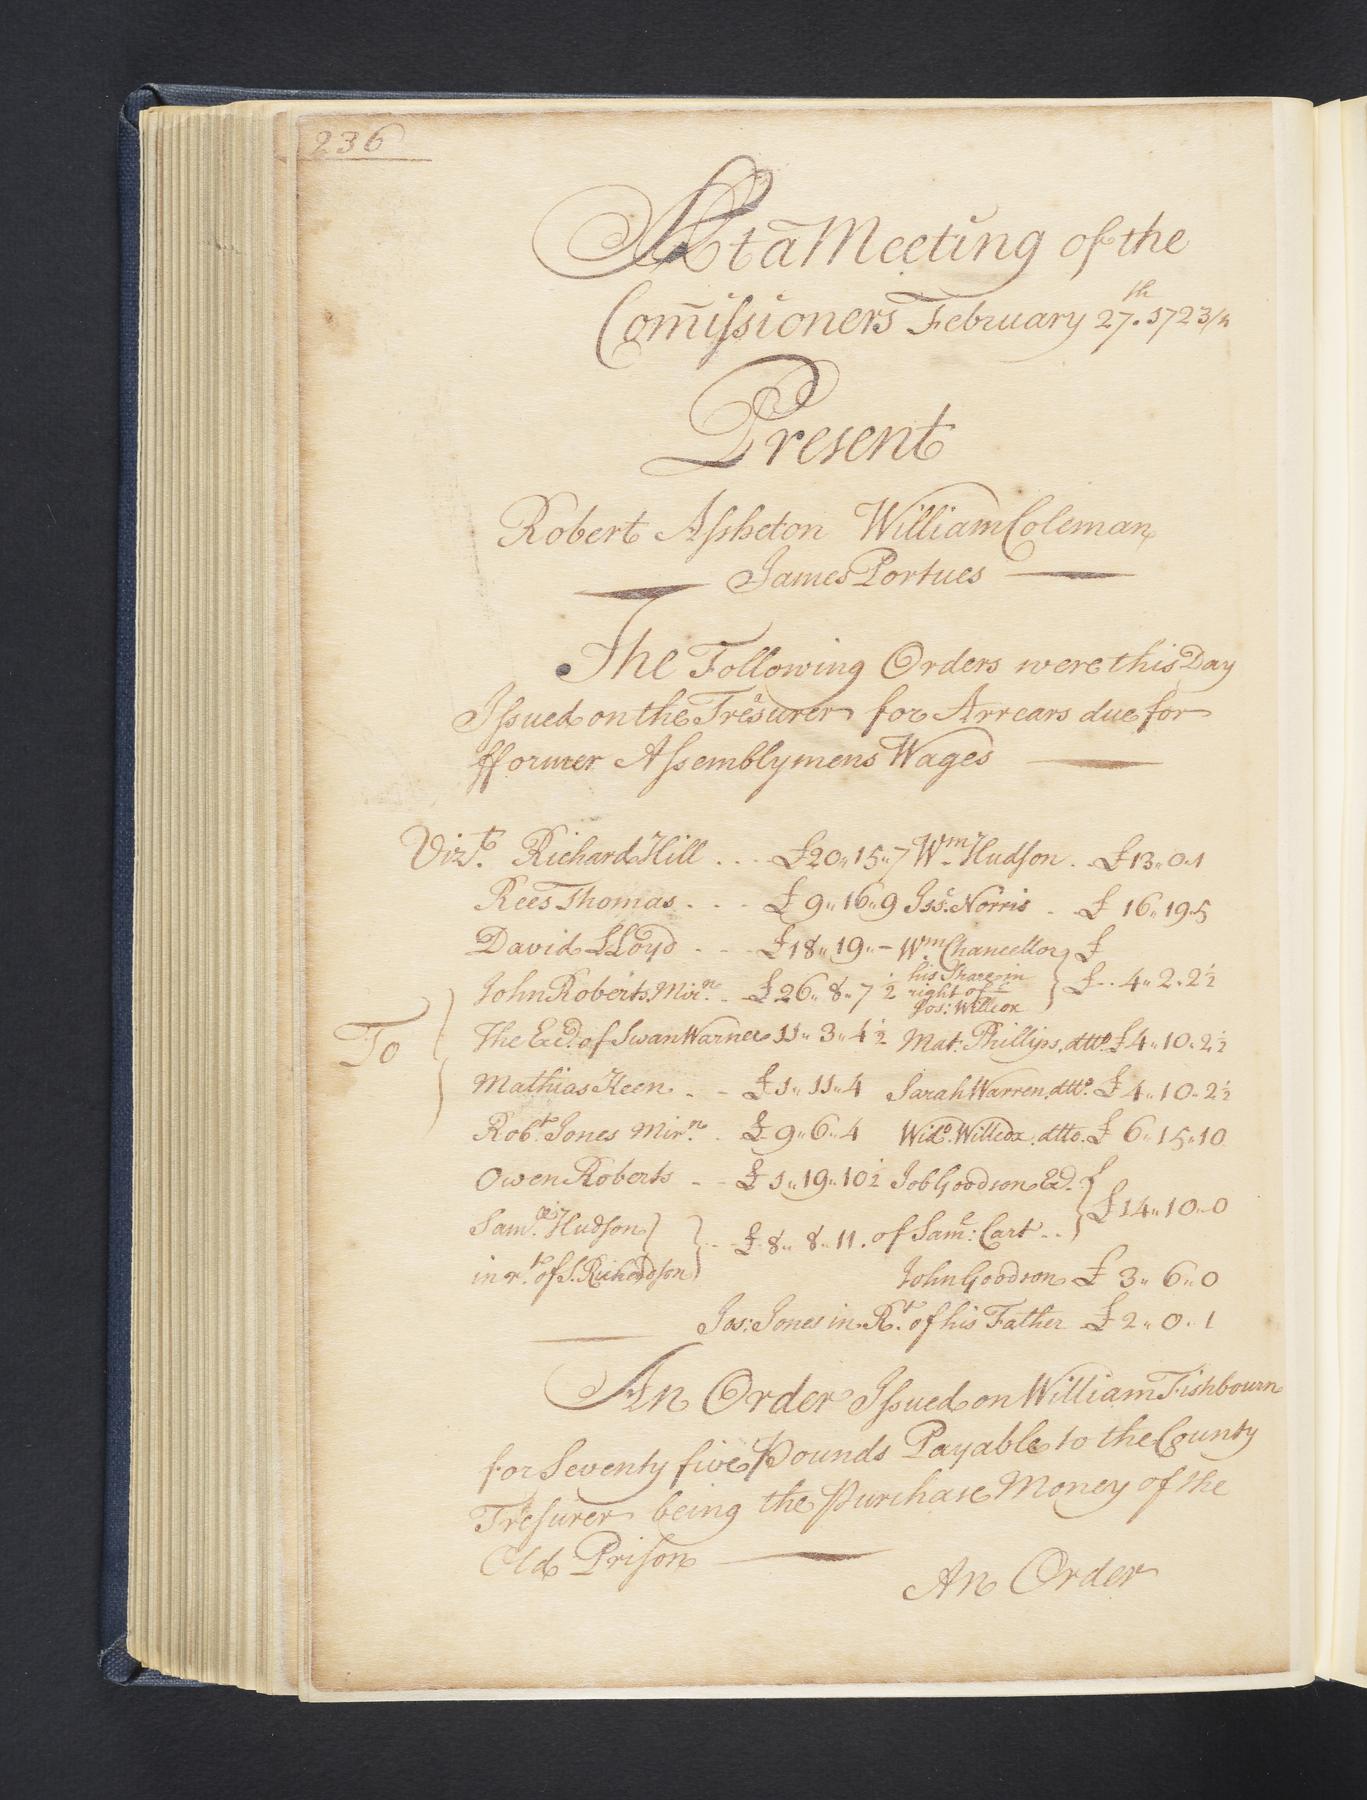 236
At a Meeting of the
Com̄issioners February 27.th 1723/4
Present
Robert Assheton William Coleman
James Portues
The Following Orders were this Day
Issued on the Tresurer for Arrears due for
fformer Assemblymens Wages
Vizt. Richard Hill ... £20"15"7 Wm. Hudson . £13"0"1
Rees Thomas ... £9"16"9 Iss. Norris . £16"19"5
David LLoyd ... £18"19"- Wm. Chancellor £
John Roberts Mirn. £26"8"7½ his Share in right of Jos: Willcox } £..4"2"2½
To
The Ecd. of Swan Warner 11"3"4½ Mat. Phillips, ditto £4"10"2½
Mathias Keen . - £1"11"4 Sarah Warren, ditto. £4"10"2½
Robt. Jones Mirn. . £9"6"4 Wido. Willcox ditto. £6"15"10
Owen Roberts - - £1"19"10½ Job Goodson Ed.
Saml. Hudson } £8"8"11. of Saml: Cart .. } £14"10"0
in rt. of J. Richardson
John Goodson £3"6"0
Jos: Jones in Rt. of his Father £2"0"1
An Order Issued on William Fishbourn
for Seventy five Pounds Payable to the County
Tresurer being the Purchase Money of the
Old Prison
An Order